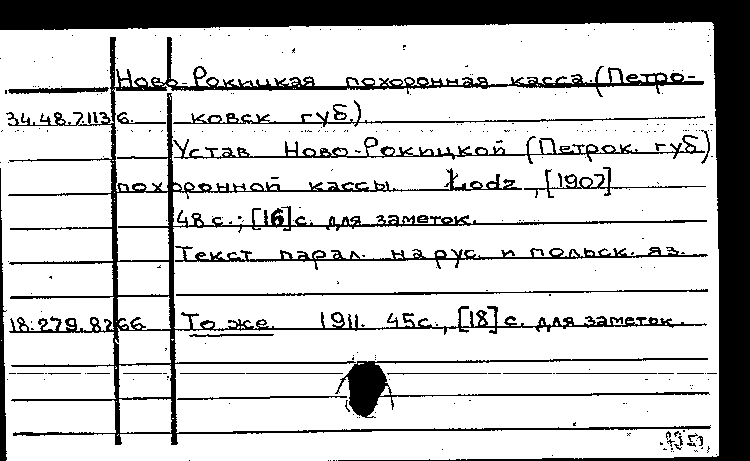 Ново-Рокицкая похоронная касса. (Петро-
34.48.7.113 6. ковск. губ.).
Устав Ново-Рокицкой (Петрок. губ)
похоронной кассы. Łodz, [1907]
48 с.; [16] с. для заметок.
Текст парал. на рус. и польск. яз.
18.279.8266. То же. 1911. 45с., [18] с. для заметок.